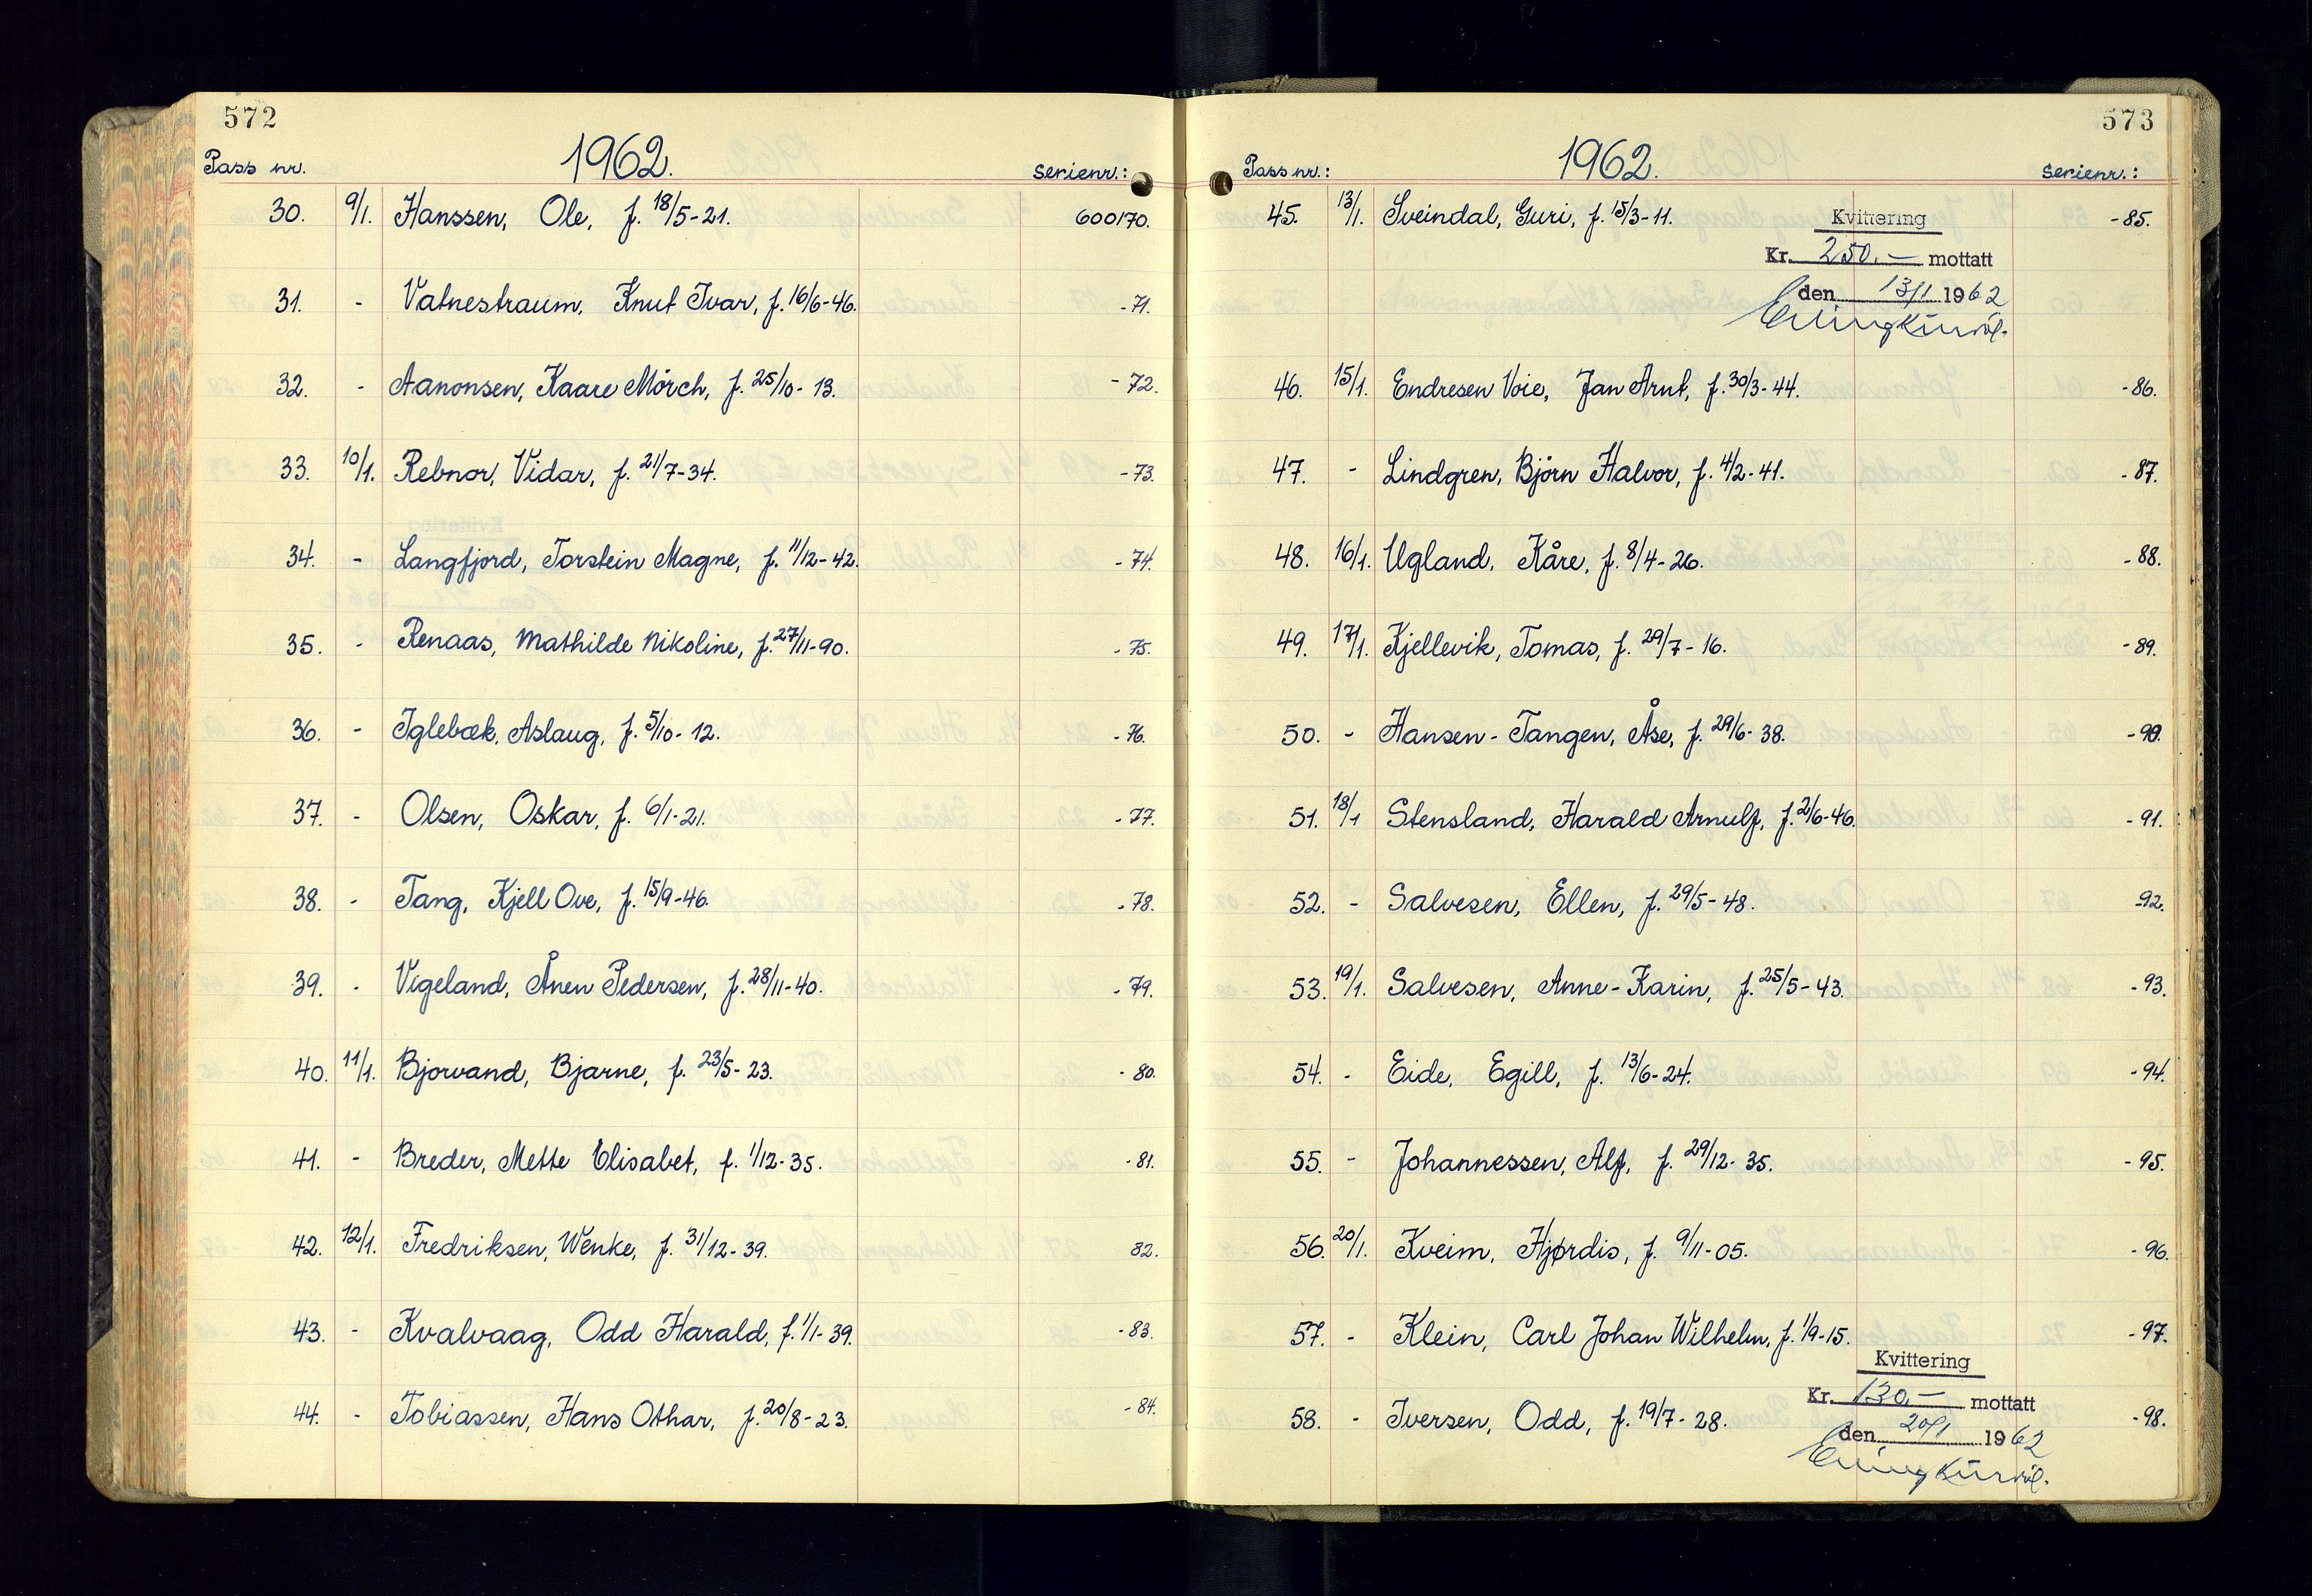 572
Pass nr. 1962. serienr.:
30. 9/1. Hanssen, Ole, f. 18/5-21. 600170.
31. - Vatnestraum, Knut Ivar, f. 16/6-46. -71.
32. - Aanonsen, Kaare Mörch, f. 25/10-13. -72.
33. 10/1. Rebnor, Vidar, f. 21/7-34. -73.
34. - Langfjord, Torstein Magne, f. 11/12-42. -74.
35. - Renaas, Mathilde Nikoline, f. 27/11-90. -75.
36. - Iglebæk, Aslaug, f. 5/10-12. -76.
37. - Olsen, Oskar, f. 6/1-21. -77.
38. - Tang, Kjell Ove, f. 15/9-46. -78.
39. - Vigeland, Ånen Pedersen, f. 28/11-40. -79.
40. 11/1. Bjorvand, Bjarne, f. 23/5-23. -80.
41. - Breder, Mette Elisabet, f. 1/12-35. -81.
42. 12/1. Fredriksen, Wenke, f. 31/12-39. 82.
43. - Kvalvaag, Odd Harald, f. 1/1-39. -83.
44. - Tobiassen, Hans Othar, f. 20/8-23. -84.
573
Pass nr.: 1962. serienr.:
45. 13/1. Sveindal, Guri, f. 15/3-11. -85.
Kvittering
Kr. 250.- mottatt
den 13/1 1962
46. 15/1. Endresen Voie, Jan Arnt, f. 30/3-44. -86.
47. - Lindgren, Björn Halvor, f. 4/2-41. -87.
48. 16/1. Ugland, Kåre, f. 8/4-26. -88.
49. 17/1. Kjellevik, Tomas, f. 29/7-16. -89.
50. - Hansen-Tangen, Åse, f. 29/6-38. -90.
51. 18/1 Stensland, Harald Arnulf, f. 2/6-46. -91.
52. - Salvesen, Ellen, f. 29/5-48. -92.
53. 19/1. Salvesen, Anne-Karin, f. 25/5-43. -93.
54. - Eide, Egill, f. 13/6-24. -94.
55. - Johannessen, Alf, f. 29/12-35. -95.
56. 20/1. Kveim, Hjørdis, f. 9/11-05. -96.
57. - Klein, Carl Johan Wilhelm, f. 1/9-15. -97.
Kvittering
Kr. 130,- mottatt
58. - Iversen, Odd, f. 19/7-28. -98.
den 20/1 1962